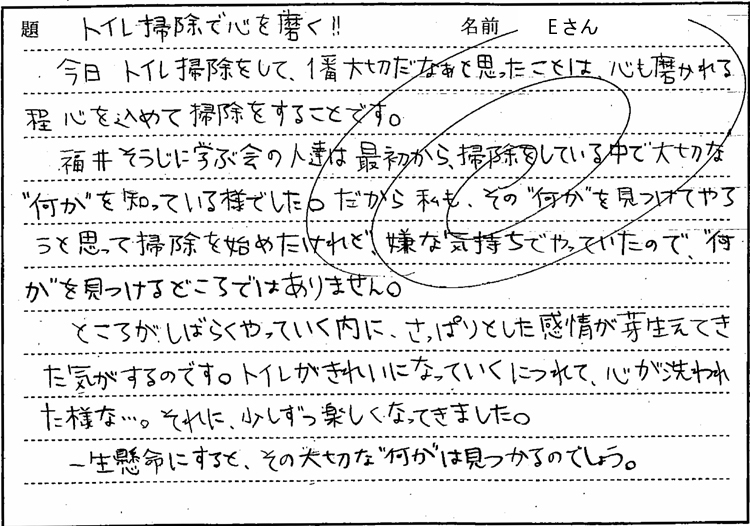 題 トイレ掃除で心を磨く!! 名前 Eさん
今日 トイレ掃除をして、1番大切だなぁと思ったことは、心も磨かれる
程 心を込めて掃除をすることです。
福井そうじに学ぶ会の人達は最初から、掃除をしている中で大切な
"何か"を知っている様でした。だから私も、その"何か"を見つけてやろ
うと思って掃除を始めたけれど、嫌な気持ちでやっていたので、"何
か"を見つけるどころではありません。
ところがしばらくやっていく内に、さっぱりとした感情が芽生えてき
た気がするのです。トイレがきれいになっていくにつれて、心が洗われ
た様な…。それに、少しずつ楽しくなってきました。
一生懸命にすると、その大切な"何か"は見つかるのでしょう。